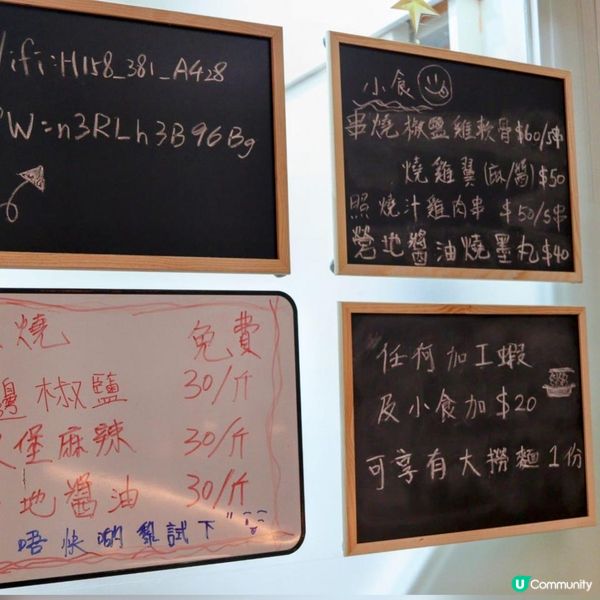 ifi:H158_381_A428
PW=n3RLh3B96Bg
小食
串燒椒鹽雞軟骨$60/5串
燒雞翼(麻/醬)$50
照燒汁雞肉串 $50/5串
營地醬油燒墨丸$40
燒 免費
椒鹽 30/斤
堡麻辣 30/斤
地醬油 30/斤
唔快啲黎試下
任何加工蝦
及小食加$20
可享有大撈麵1份
U Community